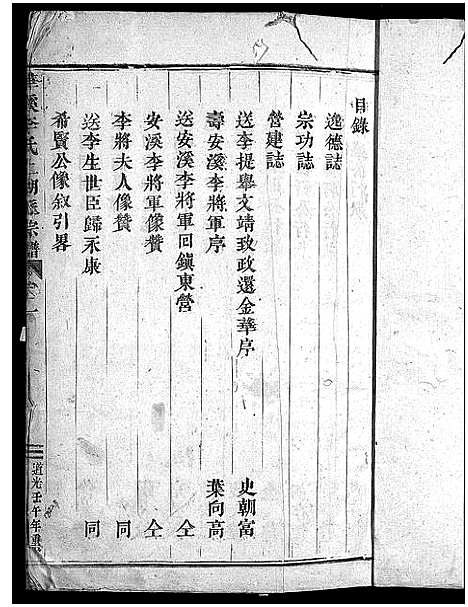 目錄
逸德誌
宗功誌
營建誌
送李提舉文靖致政還金華序 史朝富
壽安溪李將軍序 葉向高
送安溪李將軍回鎮東營 仝
安溪李將軍像贊 仝
李將夫人像贊 同
送李生世臣歸永康 同
希賢公像敘引畧
李氏 宗譜 卷一 道光壬午年重